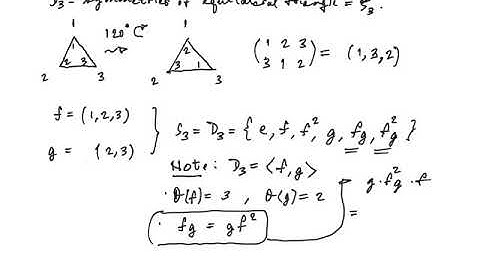 D₃ = symmetries of equilateral triangle = S₃.
1 120° 1
1 2
2 3 3 1
2 3 2 3
( 1 2 3
3 1 2 ) = (1,3,2)
f = (1,2,3)
g = (2,3)
S₃ = D₃ = { e, f, f², g, fg, f²g }
Note: D₃ = <f,g>
· O(f) = 3 , O(g) = 2
· fg = gf²
g·f²g·f
=